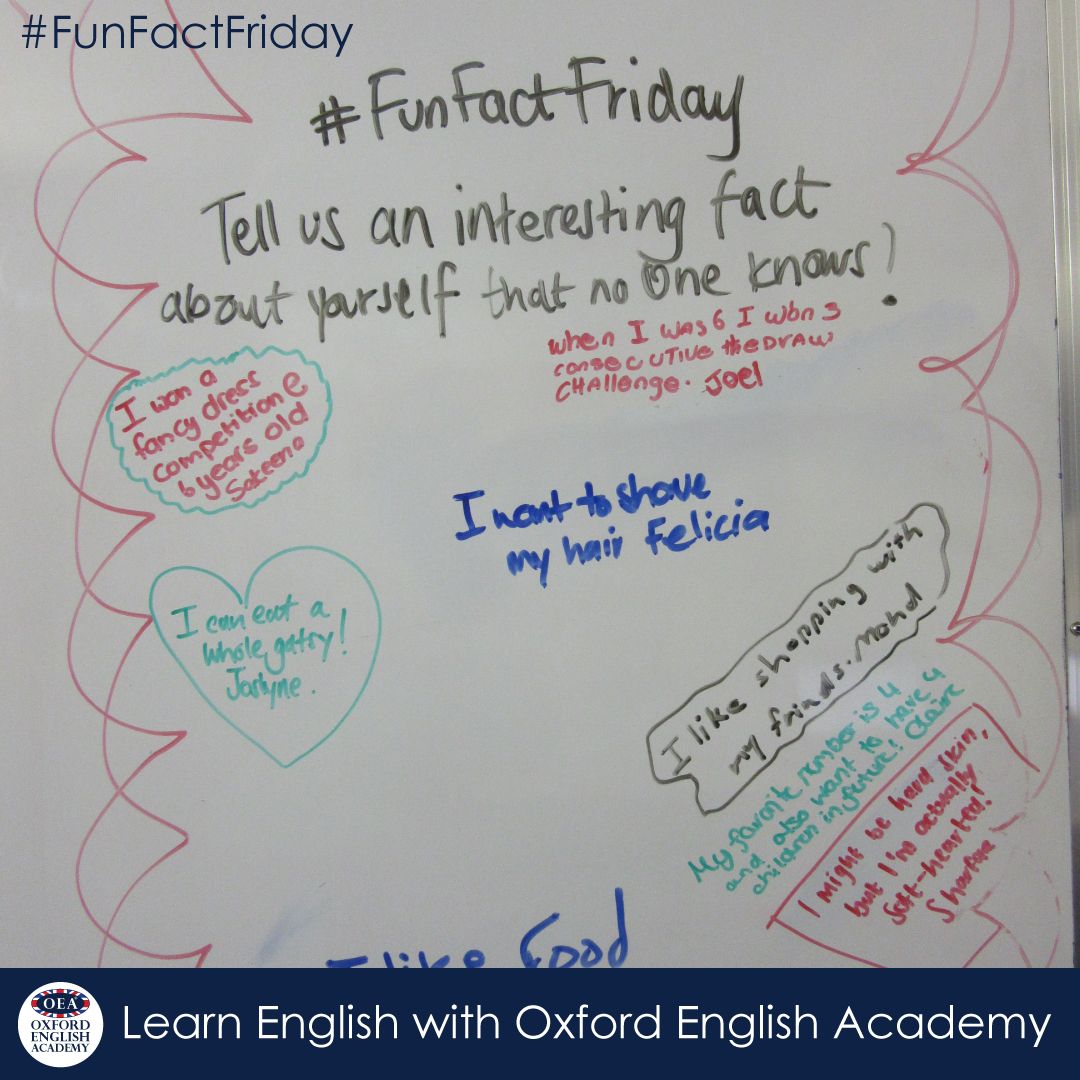 #FunFactFriday
#FunFactFriday
Tell us an interesting fact
about yourself that no one knows!
when I was 6 I won 3
consecutive the DRAW
CHAllenge. Joel
I won a
fancy dress
competition @
6 years old
Sakeena
I want to shave
my hair Felicia
I can eat a
whole
Jaslyne.
I like shopping with
my frinds. Mohd
My favorite number is 4
and also want to have 4
children in future! Claire
I might be hard skin,
but I'm actually
soft-hearted!
I like Food
OEA
OXFORD
ENGLISH
ACADEMY
Learn English with Oxford English Academy